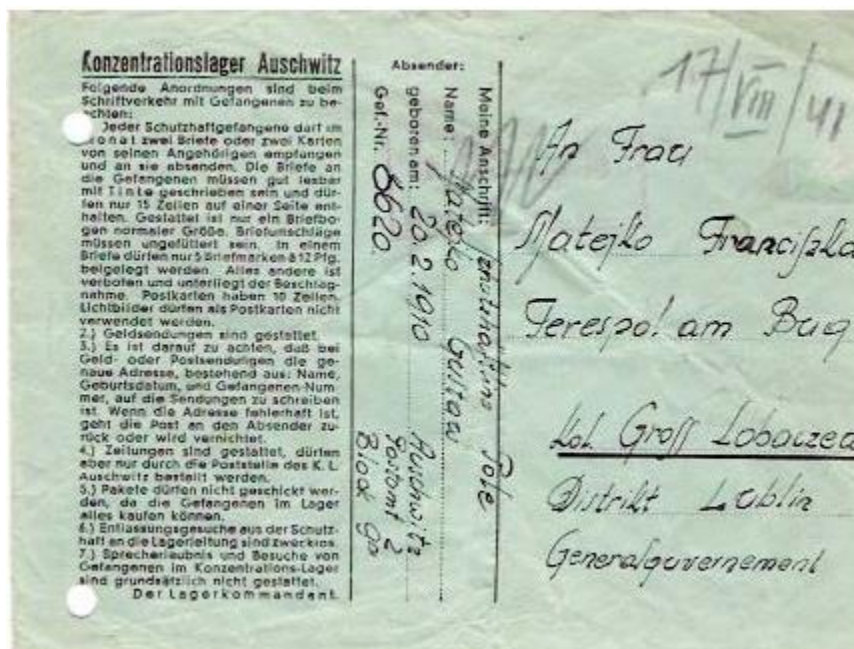 Konzentrationslager Auschwitz
Folgende Anordnungen sind beim
Schriftverkehr mit Gefangenen zu be-
achten:
Jeder Schutzhaftgefangene darf im
Monat zwei Briefe oder zwei Karten
von seinen Angehörigen empfangen
und an sie absenden. Die Briefe an
die Gefangenen müssen gut lesbar
mit Tinte geschrieben sein und dür-
fen nur 15 Zeilen auf einer Seite ent-
halten. Gestattet ist nur ein Briefbo-
gen normaler Größe. Briefumschläge
müssen ungefüttert sein. In einem
Briefe dürfen nur 5 Briefmarken à 12 Pfg.
beigelegt werden. Alles andere ist
verboten und unterliegt der Beschlag-
nahme. Postkarten haben 10 Zeilen.
Lichtbilder dürfen als Postkarten nicht
verwendet werden.
2.) Geldsendungen sind gestattet.
3.) Es ist darauf zu achten, daß bei
Geld- oder Postsendungen die ge-
naue Adresse, bestehend aus: Name,
Geburtsdatum, und Gefangenen-Num-
mer, auf die Sendungen zu schreiben
ist. Wenn die Adresse fehlerhaft ist,
geht die Post an den Absender zu-
rück oder wird vernichtet.
4.) Zeitungen sind gestattet, dürfen
aber nur durch die Poststelle des K. L.
Auschwitz bestellt werden.
5.) Pakete dürfen nicht geschickt wer-
den, da die Gefangenen im Lager
alles kaufen können.
6.) Entlassungsgesuche aus der Schutz-
haft an die Lagerleitung sind zwecklos.
7.) Sprecherlaubnis und Besuche von
Gefangenen im Konzentrations-Lager
sind grundsätzlich nicht gestattet.
Der Lagerkommandant.
Absender:
Meine Anschrift: Pole
Name: Matejko Gustaw
geboren am: 20.2.1910 Auschwitz
Postamt 2
Gef.-Nr. 6620 Block
17/VIII/41
An Frau
Matejko Franciszka
Terespol am Bug
Kol. Gross
Distrikt Lublin
Generalgouvernement